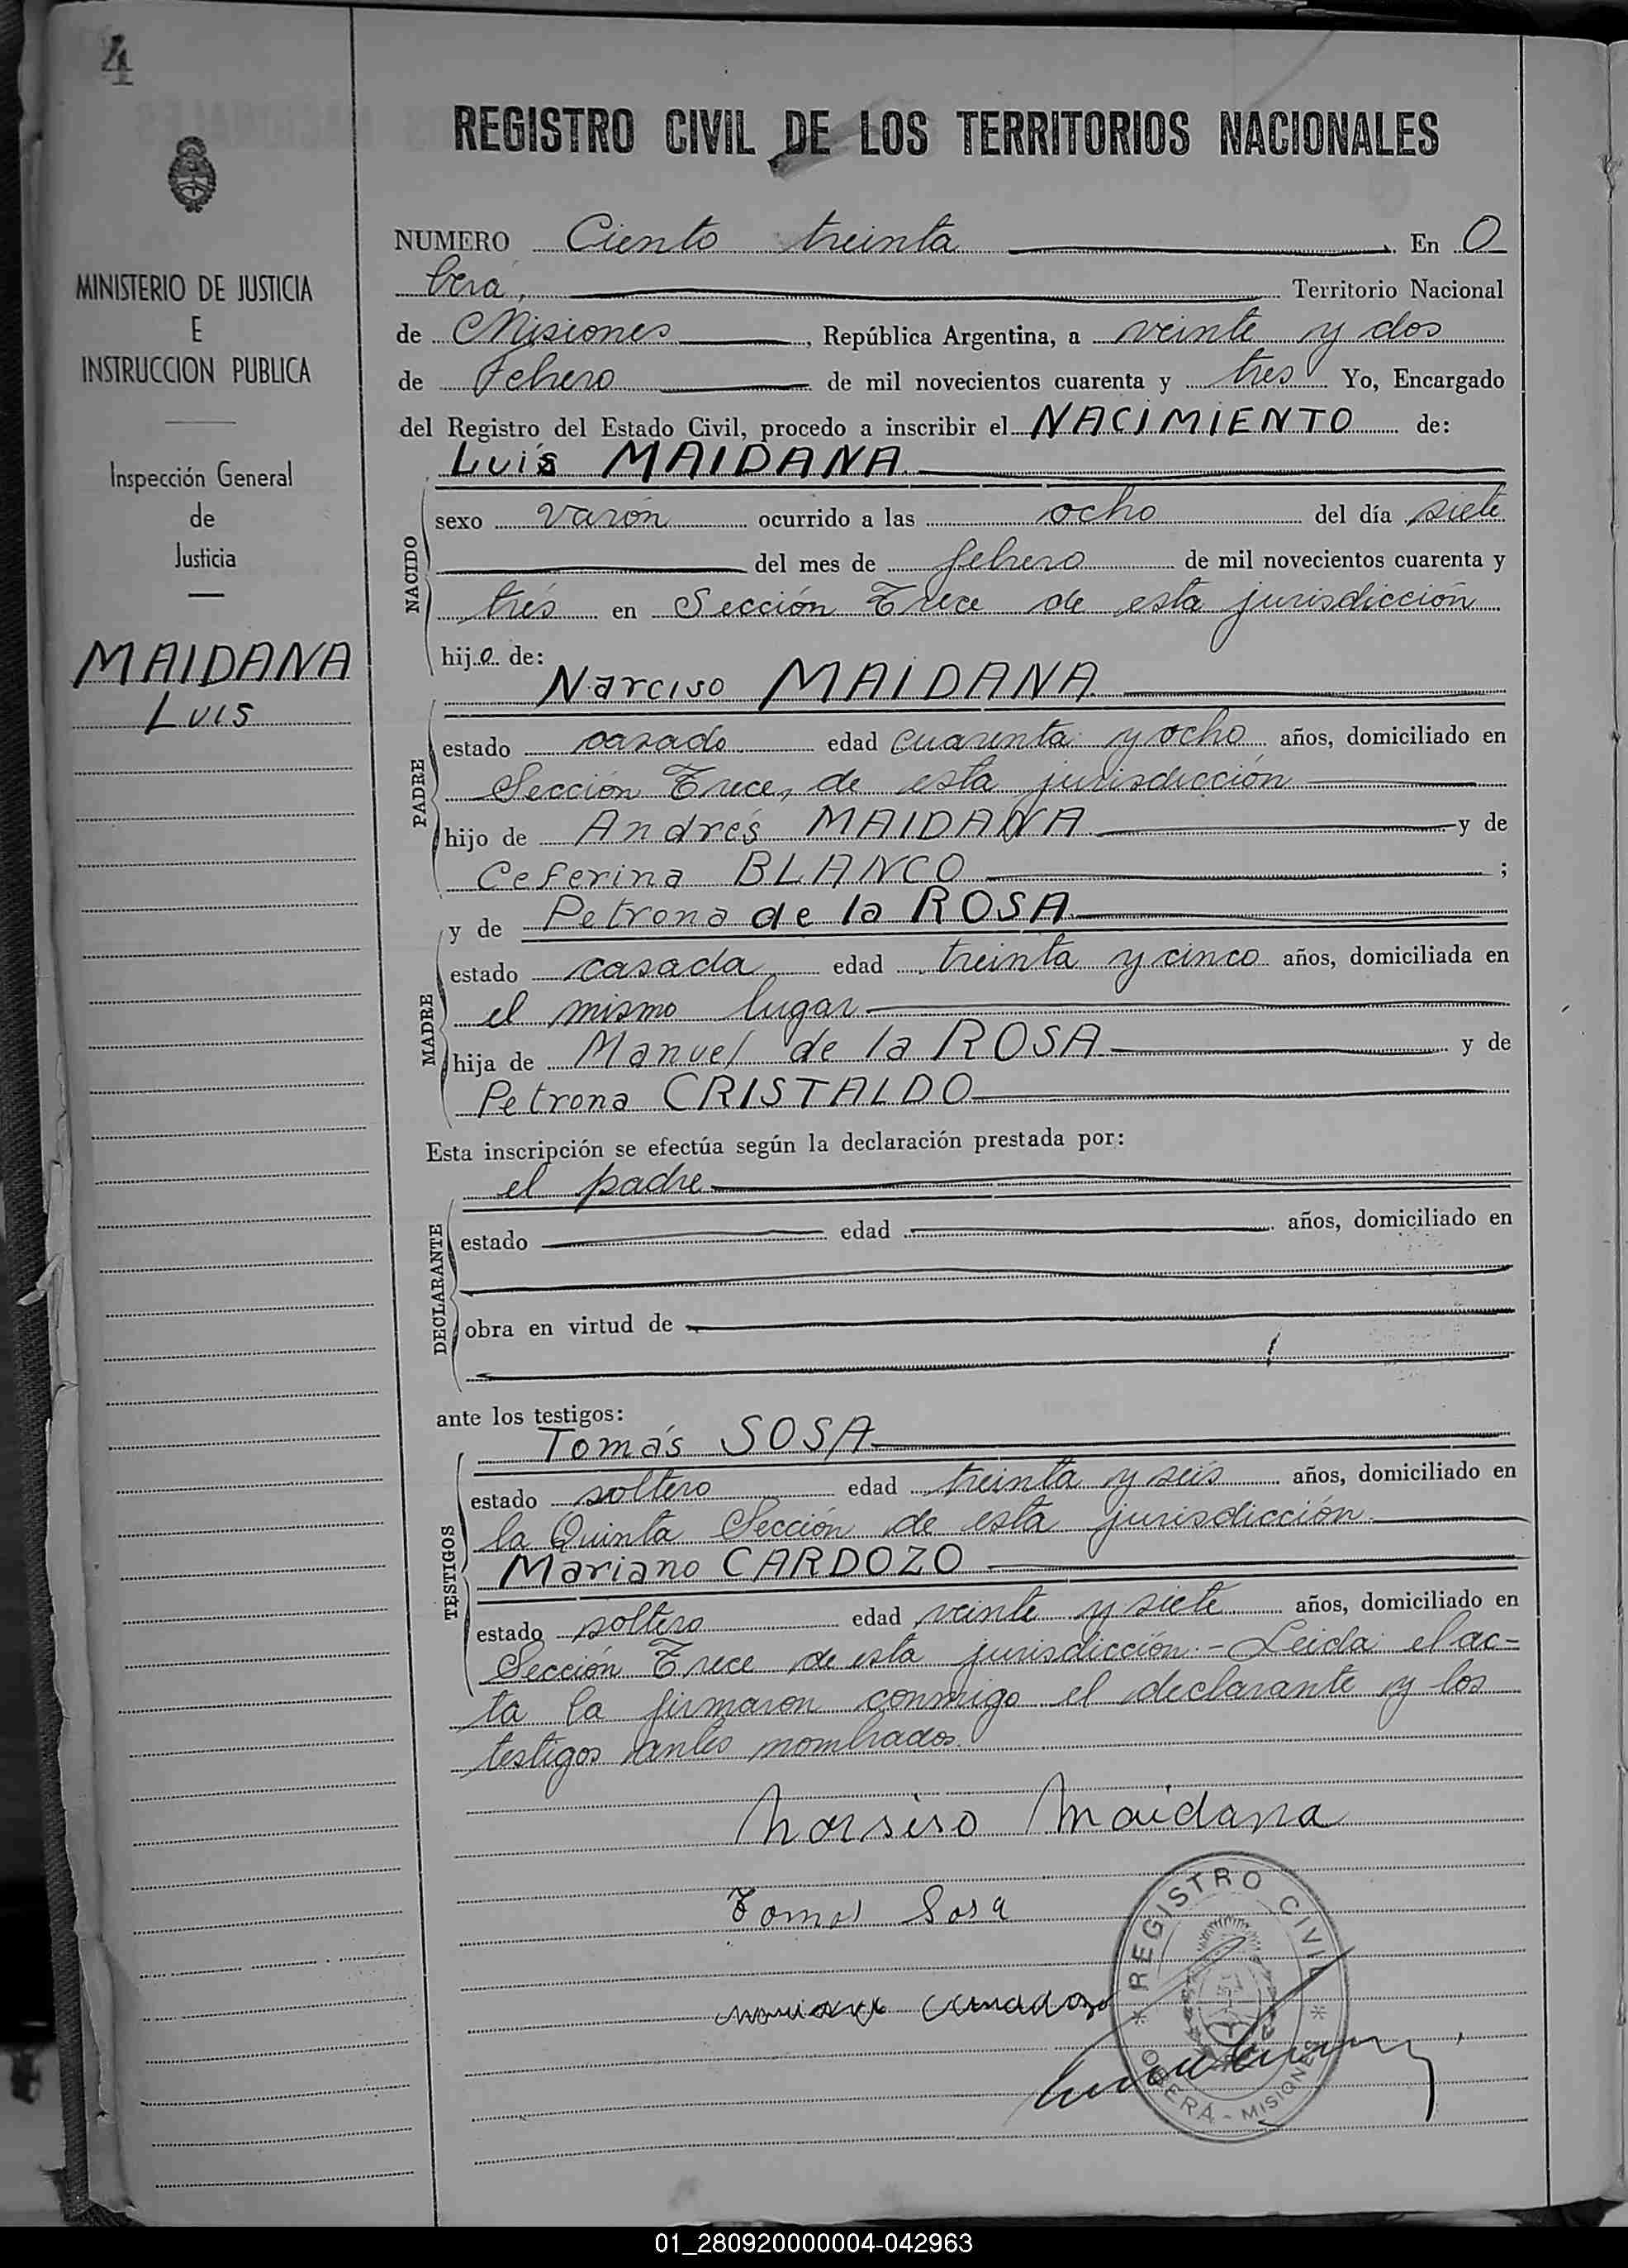 4
REGISTRO CIVIL DE LOS TERRITORIOS NACIONALES
MINISTERIO DE JUSTICIA
E
INSTRUCCION PUBLICA
Inspección General
de
Justicia
MAIDANA
Luis
NUMERO Ciento treinta. En O
berá, Territorio Nacional
de Misiones, República Argentina, a veinte y dos
de Febrero de mil novecientos cuarenta y tres Yo, Encargado
del Registro del Estado Civil, procedo a inscribir el NACIMIENTO de:
Luis MAIDANA
NACIDO
sexo varón ocurrido a las ocho del día siete
del mes de febrero de mil novecientos cuarenta y
trés en Sección Trece de esta jurisdicción
hijo de:
Narciso MAIDANA
PADRE
estado casado edad cuarenta y ocho años, domiciliado en
Sección Trece, de esta jurisdicción
hijo de Andrés MAIDANA y de
Ceferina BLANCO ;
y de Petrona de la ROSA
MADRE
estado casada edad treinta y cinco años, domiciliada en
el mismo lugar
hija de Manuel de la ROSA y de
Petrona CRISTALDO
Esta inscripción se efectúa según la declaración prestada por:
el padre
DECLARANTE
estado edad años, domiciliado en
obra en virtud de
ante los testigos:
Tomás SOSA
TESTIGOS
estado soltero edad treinta y seis años, domiciliado en
la Quinta Sección de esta jurisdicción
Mariano CARDOZO
estado soltero edad veinte y siete años, domiciliado en
Sección Trece de esta jurisdicción.- Leida el ac-
ta la firmaron conmigo el declarante y los
testigos antes nombrados.
Narsiso Maidana
Tomas Sosa
REGISTRO CIVIL
OBERÁ - MISIONES
01_280920000004-042963